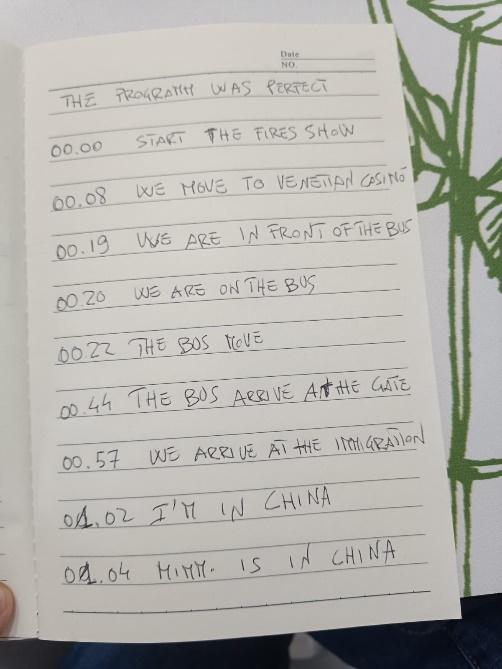 Date
NO.
THE PROGRAMM WAS PERFECT
00.00 START THE FIRES SHOW
00.08 WE MOVE TO VENETIAN CASINÒ
00.19 WE ARE IN FRONT OF THE BUS
00.20 WE ARE ON THE BUS
00.22 THE BUS MOVE
00.44 THE BUS ARRIVE AT THE GATE
00.57 WE ARRIVE AT THE IMMIGRATION
01.02 I'M IN CHINA
01.04 MIMM. IS IN CHINA